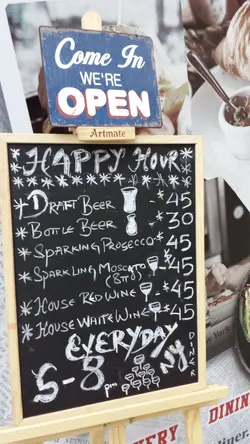 Come In
WE'RE
OPEN
Artmate
HAPPY HOUR
* DRAFT BEER * 45
* BOTTLE BEER * 30
* SPARKING PROSECCO * 45
* SPARKLING MOSCATO * 45
* HOUSE RED WINE * 45
* HOUSE WHITE WINE * 45
EVERYDAY
5-8 pm
NY DINER
DINING